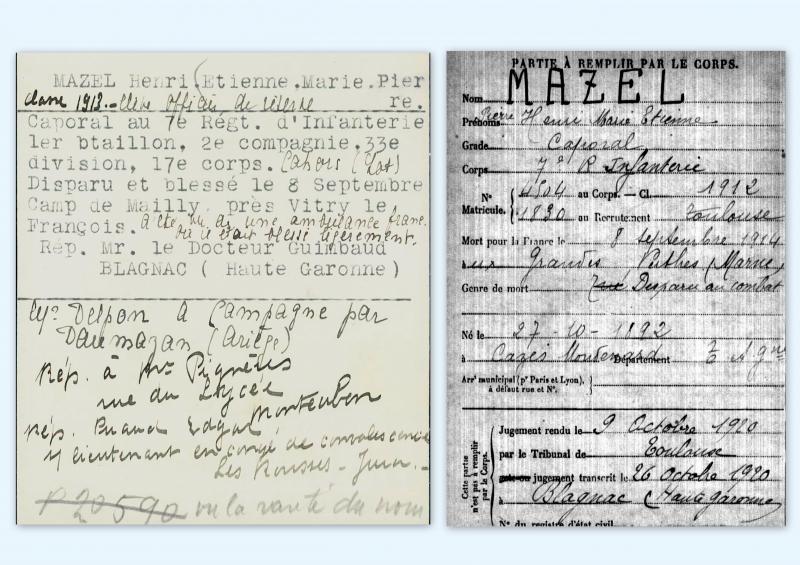 MAZEL Henri (Etienne.Marie.Pier
re.
classe 1913.- élève officier de réserve
Caporal au 7e Régt. d'Infanterie
1er btaillon, 2e compagnie.33e
division, 17e corps. Cahors (Lot)
Disparu et blessé le 8 Septembre
Camp de Mailly, près Vitry le
François. a été vu ds une ambulance franc.
où il était blessé légèrement.
Rép. Mr. le Docteur Guimbaud
BLAGNAC ( Haute Garonne)
Delpon à Campagne par
Daumazan (Ariège)
Rép. à
rue du Lycée
Montauban
Rép. Edgar
s/ lieutenant en congé de convalescence
Les Rousses - Jura.-
P 20590 vu la rareté du nom
PARTIE À REMPLIR PAR LE CORPS.
Nom MAZEL
Prénoms Pierre Henri Marie Etienne
Grade Caporal
Corps 7e R Infanterie
N° Matricule.
4504 au Corps. – Cl. 1912
1830 au Recrutement Toulouse
Mort pour la France le 8 septembre 1914
Grandes Perthes (Marne)
Genre de mort Disparu au combat
Né le 27-10-1892
à Cazes Mondenard Département T & Gne
Arrt municipal (pr Paris et Lyon),
à défaut rue et N°.
Cette partie n'est pas à remplir par le Corps.
Jugement rendu le 9 Octobre 1920
par le Tribunal de Toulouse
jugement transcrit le 26 octobre 1920
à Blagnac (Haute Garonne)
N° du registre d'état civil